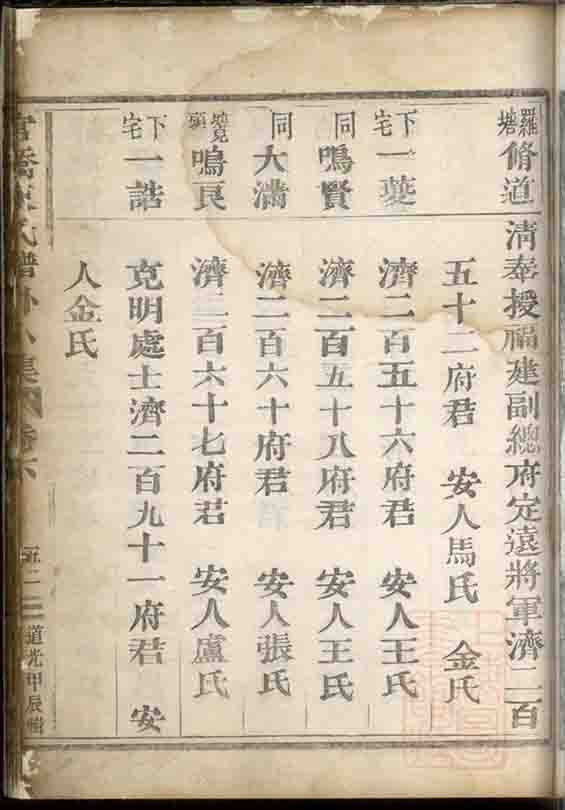 羅塘 脩道 清奉授福建副總府定遠將軍濟二百
五十二府君 安人馬氏 金氏
下宅 一夔 濟二百五十六府君 安人王氏
同 鳴賢 濟二百五十八府君 安人王氏
同 大滿 濟二百六十府君 安人張氏
鳴良 濟二百六十七府君 安人盧氏
下宅 一誥 克明處士濟二百九十一府君 安
人金氏
氏譜外 集 六 道光甲辰輯